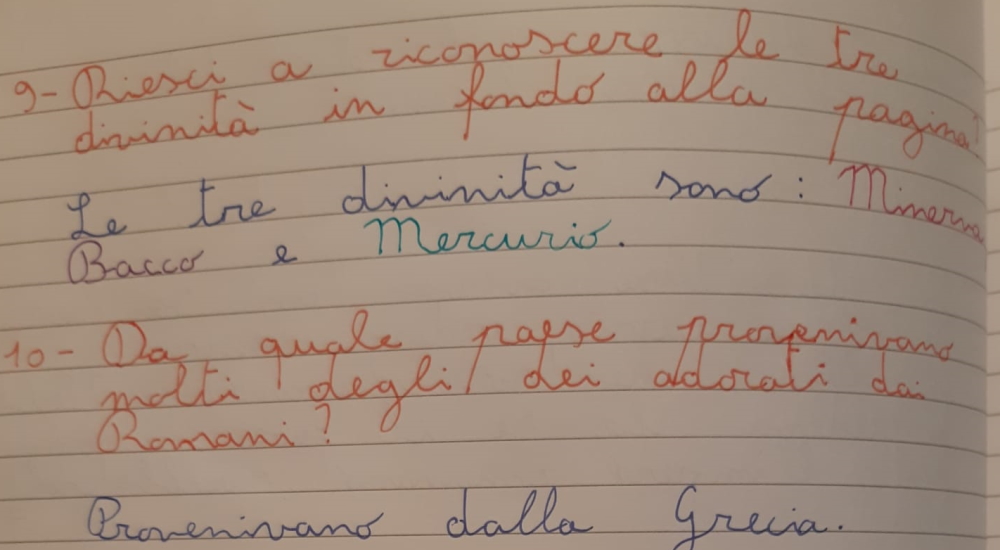 9- Riesci a riconoscere le tre
divinità in fondo alla pagina?
Le tre divinità sono: Minerva
Bacco e Mercurio.
10- Da quale paese provenivano
molti degli dei adorati dai
Romani?
Provenivano dalla Grecia.